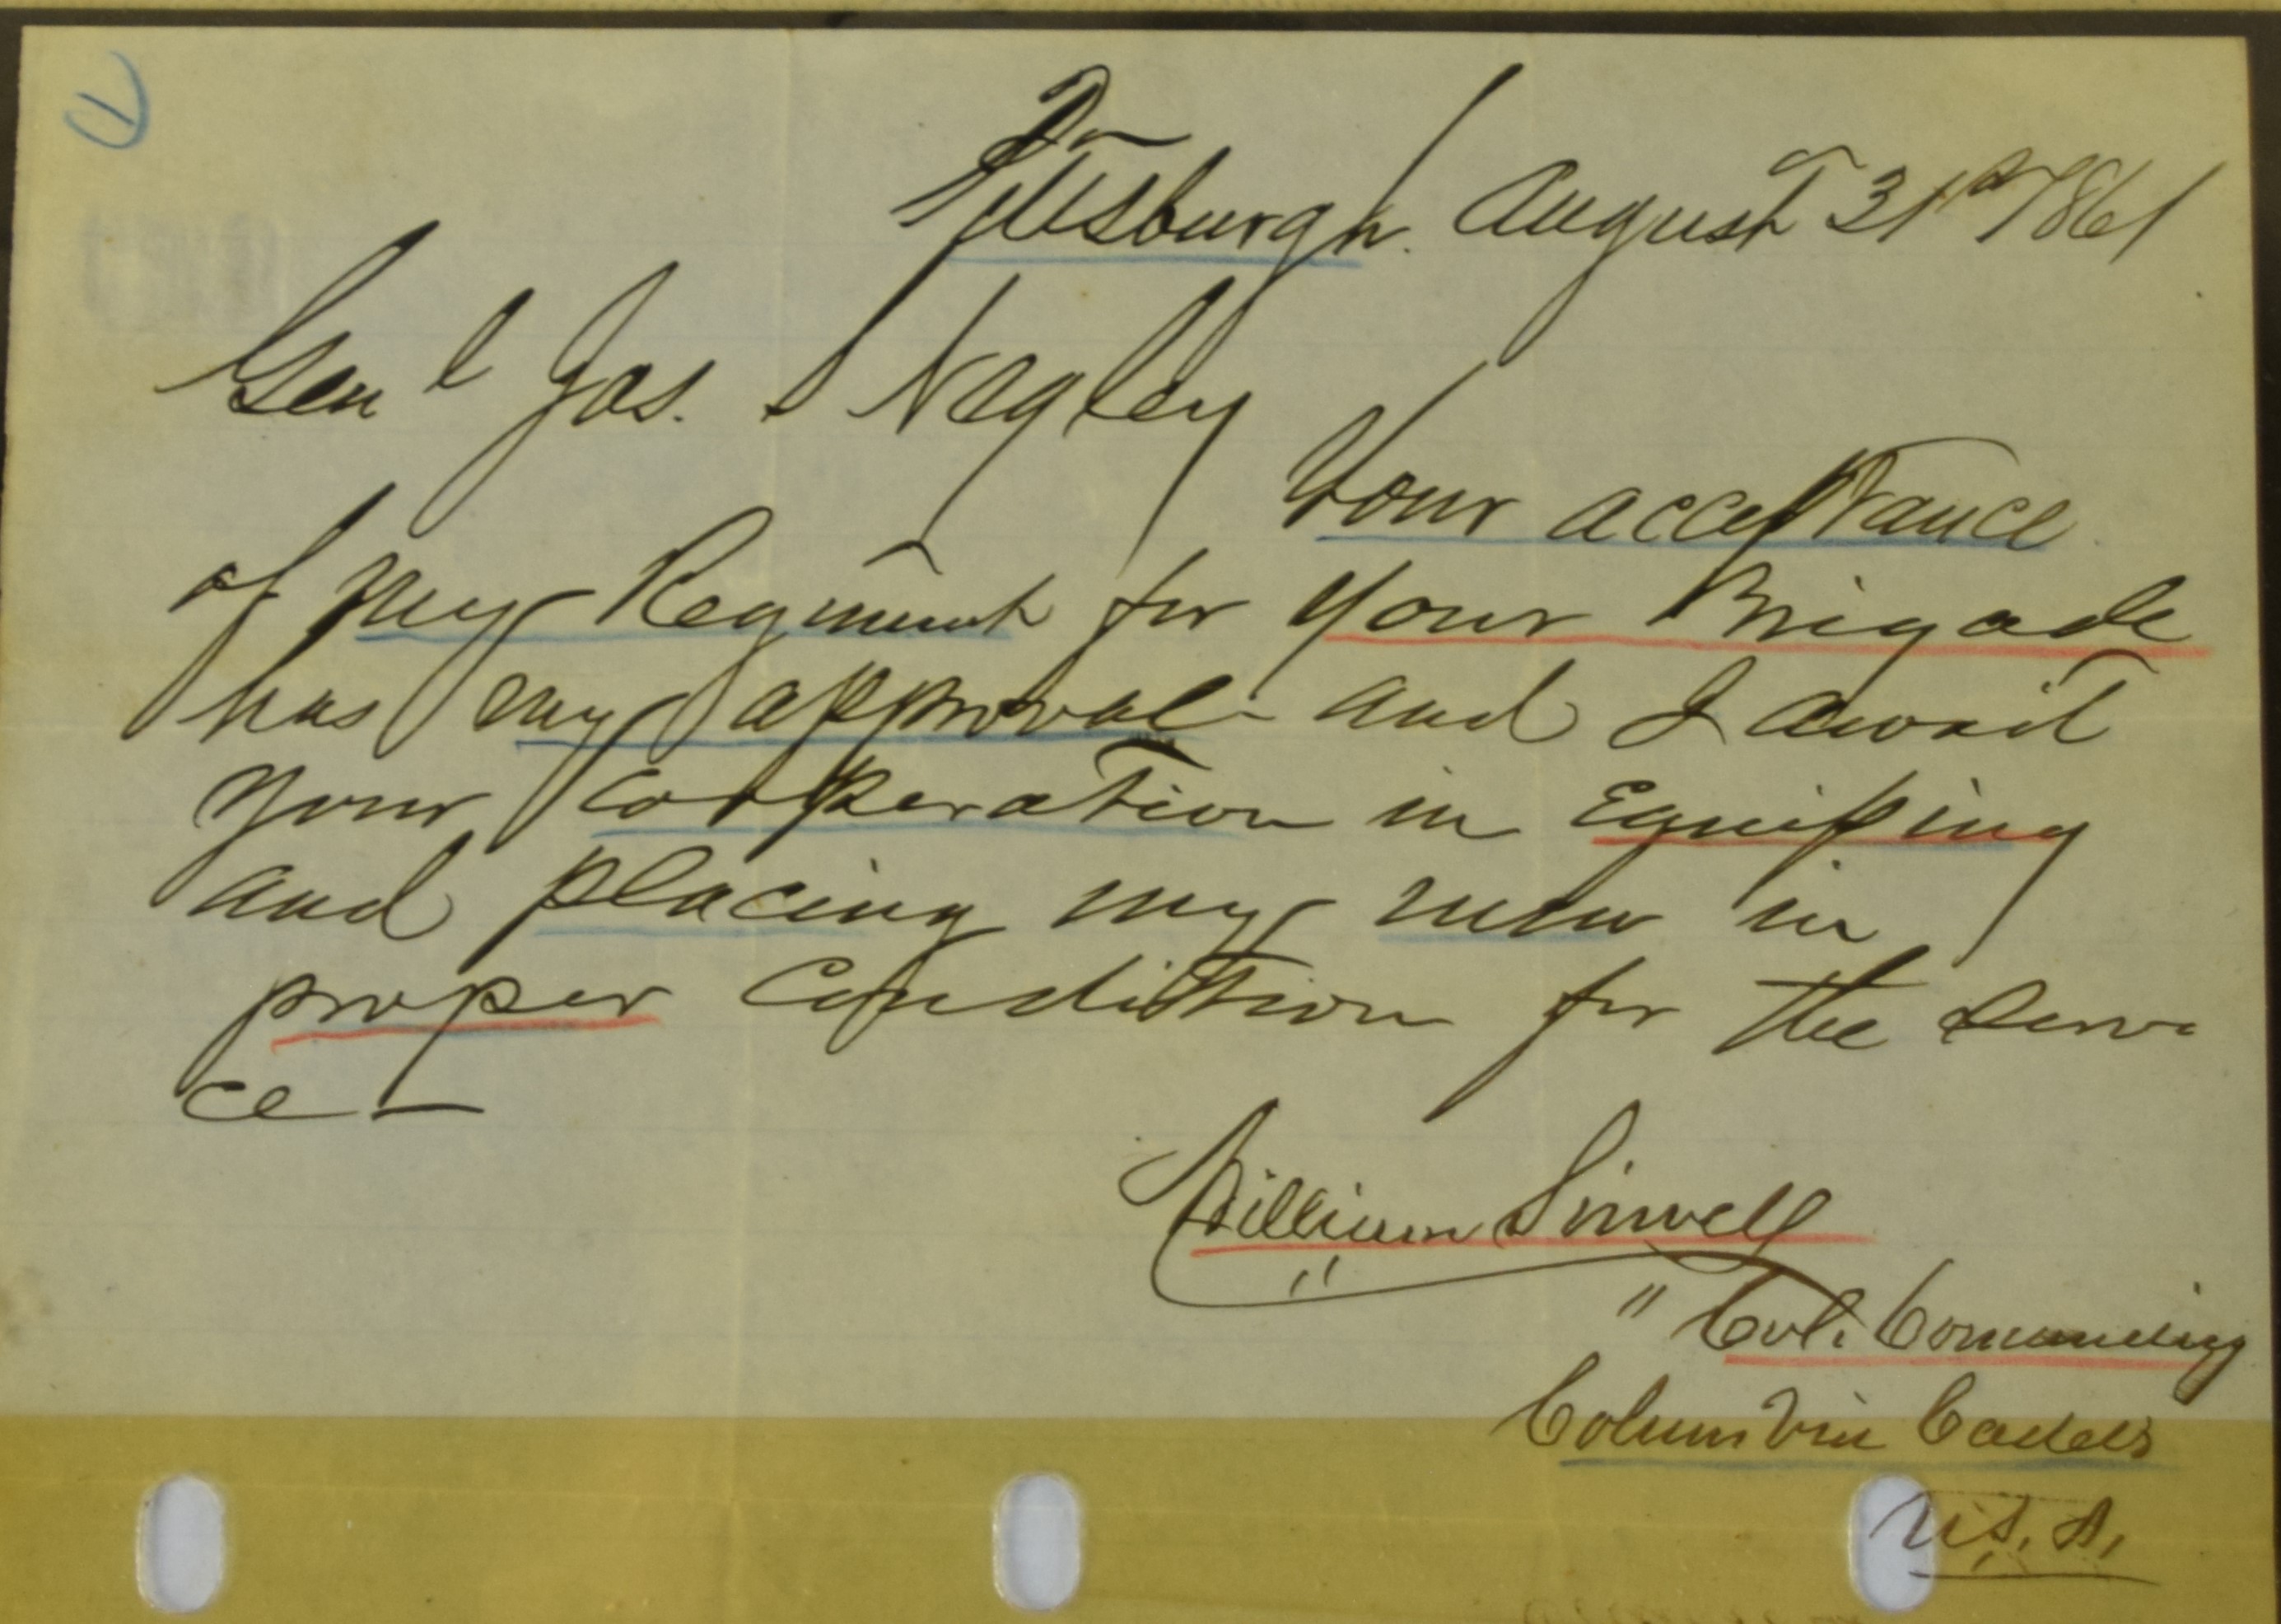 Pittsburgh. August 31st 1861
Genl Jas. S Negley
Your acceptance
of my Regiment for your Brigade
has my approval - and I await
your cooperation in Equiping
and placing my men in
proper Condition for the Servi
ce —
William Sirwell
" Col. Comanding
Columbia Cadets
U.S.A.